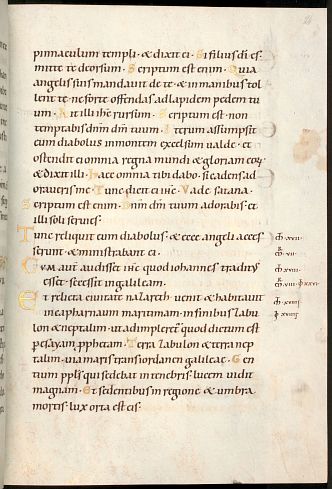 pinnaculum templi · & dixit ei · Si filius di es·
mitte te deorsum · Scriptum est enim · Quia
angelis suis mandavit de te · & in manibus tol
lent te · ne forte offendas ad lapidem pedem tu
um · Ait illi ihc rursum · Scriptum est · non
temptabis dnm dm tuum · Iterum assumpsit
eum diabolus in montem excelsum valde · et
ostendit ei omnia regna mundi & gloriam eoꝝ
& dixit illi · Haec omnia tibi dabo · si cadens ad
oraveris me · Tunc dicit ei ihc · Vade satana ·
Scriptum est enim · Dnm dm tuum adorabis · et
illi soli servies·
Tunc reliquit eum diabolus · & ecce angeli acces
serunt · & ministrabant ei·
Cum aut audisset ihc quod iohannes traditus
esset· secessit in galileam·
Et relicta civitate nazareth · venit & habitavit
in capharnaum maritimam · in finibus zabu
lon & neptalim · ut adimpleret quod dictum est
per esayam prophetam · Terra zabulon & terra nep
talim · via maris trans iordanen galileae · Gen
tium ppls qui sedebat in tenebris · lucem vidit
magnam · Et sedentibus in regione & umbra
mortis · lux orta est eis·